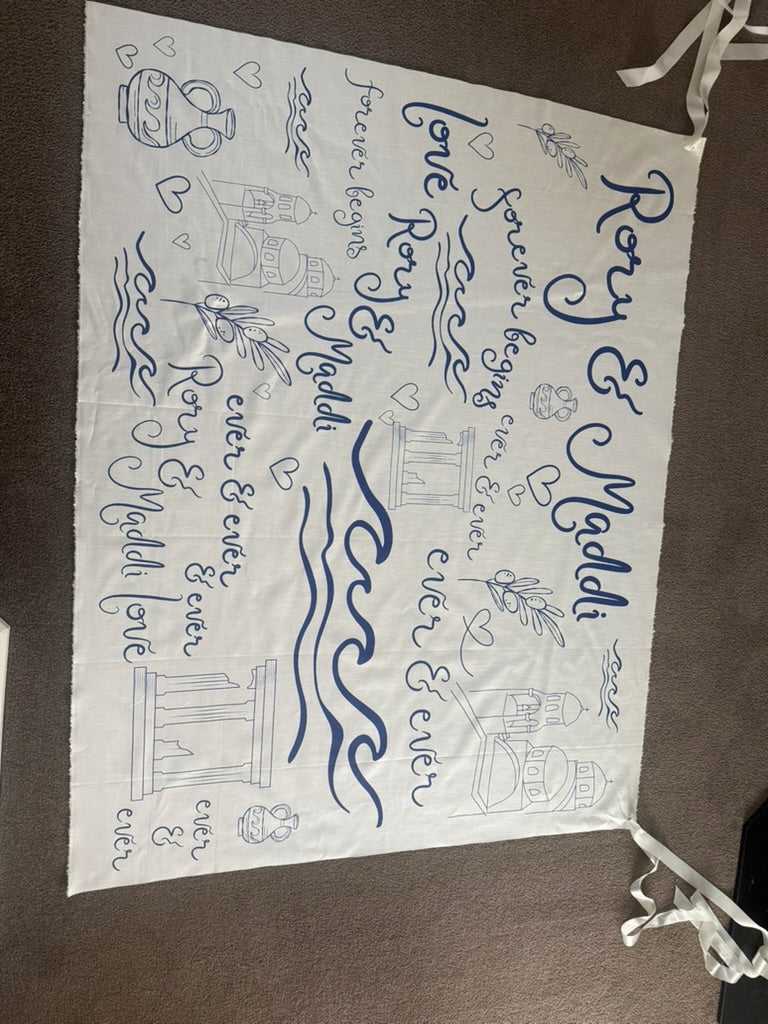 Rory & Maddi
forever begins
ever & ever
love
Rory &
Maddi
ever & ever
forever begins
ever & ever
& ever
Rory &
Maddi love
ever
&
ever